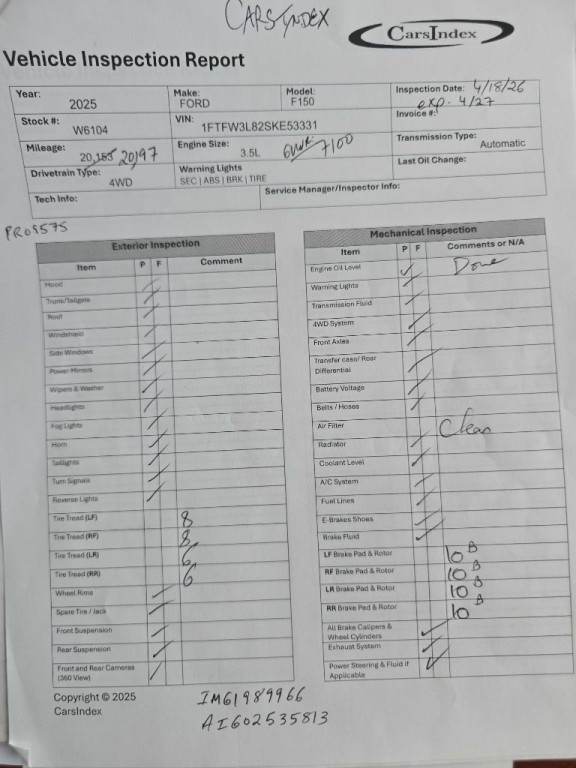 CARSINDEX
CarsIndex
Vehicle Inspection Report
Year: 2025 Make: FORD Model: F150 Inspection Date: 4/18/26
exp. 4/27
Stock #: W6104 VIN: 1FTFW3L82SKE53331 Invoice #:
Mileage: 20,185 20197 Engine Size: 3.5L 7100 Transmission Type: Automatic
Drivetrain Type: 4WD Warning Lights SEC | ABS | BRK | TIRE Last Oil Change:
Tech Info: Service Manager/Inspector Info:
PRO9575
Exterior Inspection
Item P F Comment
Hood
Trunk/Tailgate
Roof
Windshield
Side Windows
Power Mirrors
Wipers & Washer
Headlights
Fog Lights
Horn
Taillights
Turn Signals
Reverse Lights
Tire Tread (LF) 8
Tire Tread (RF) 8
Tire Tread (LR) 6
Tire Tread (RR) 6
Wheel Rims
Spare Tire / Jack
Front Suspension
Rear Suspension
Front and Rear Cameras
(360 View)
Mechanical Inspection
Item P F Comments or N/A
Engine Oil Level Done
Warning Lights
Transmission Fluid
4WD System
Front Axles
Transfer case/ Rear
Differential
Battery Voltage
Belts / Hoses
Air Filter Clean
Radiator
Coolant Level
A/C System
Fuel Lines
E-Brakes Shoes
Brake Fluid
LF Brake Pad & Rotor 10 B
RF Brake Pad & Rotor 10 B
LR Brake Pad & Rotor 10 B
RR Brake Pad & Rotor 10 B
All Brake Calipers &
Wheel Cylinders
Exhaust System
Power Steering & Fluid If
Applicable
Copyright © 2025
CarsIndex
IM61989966
AI602535813